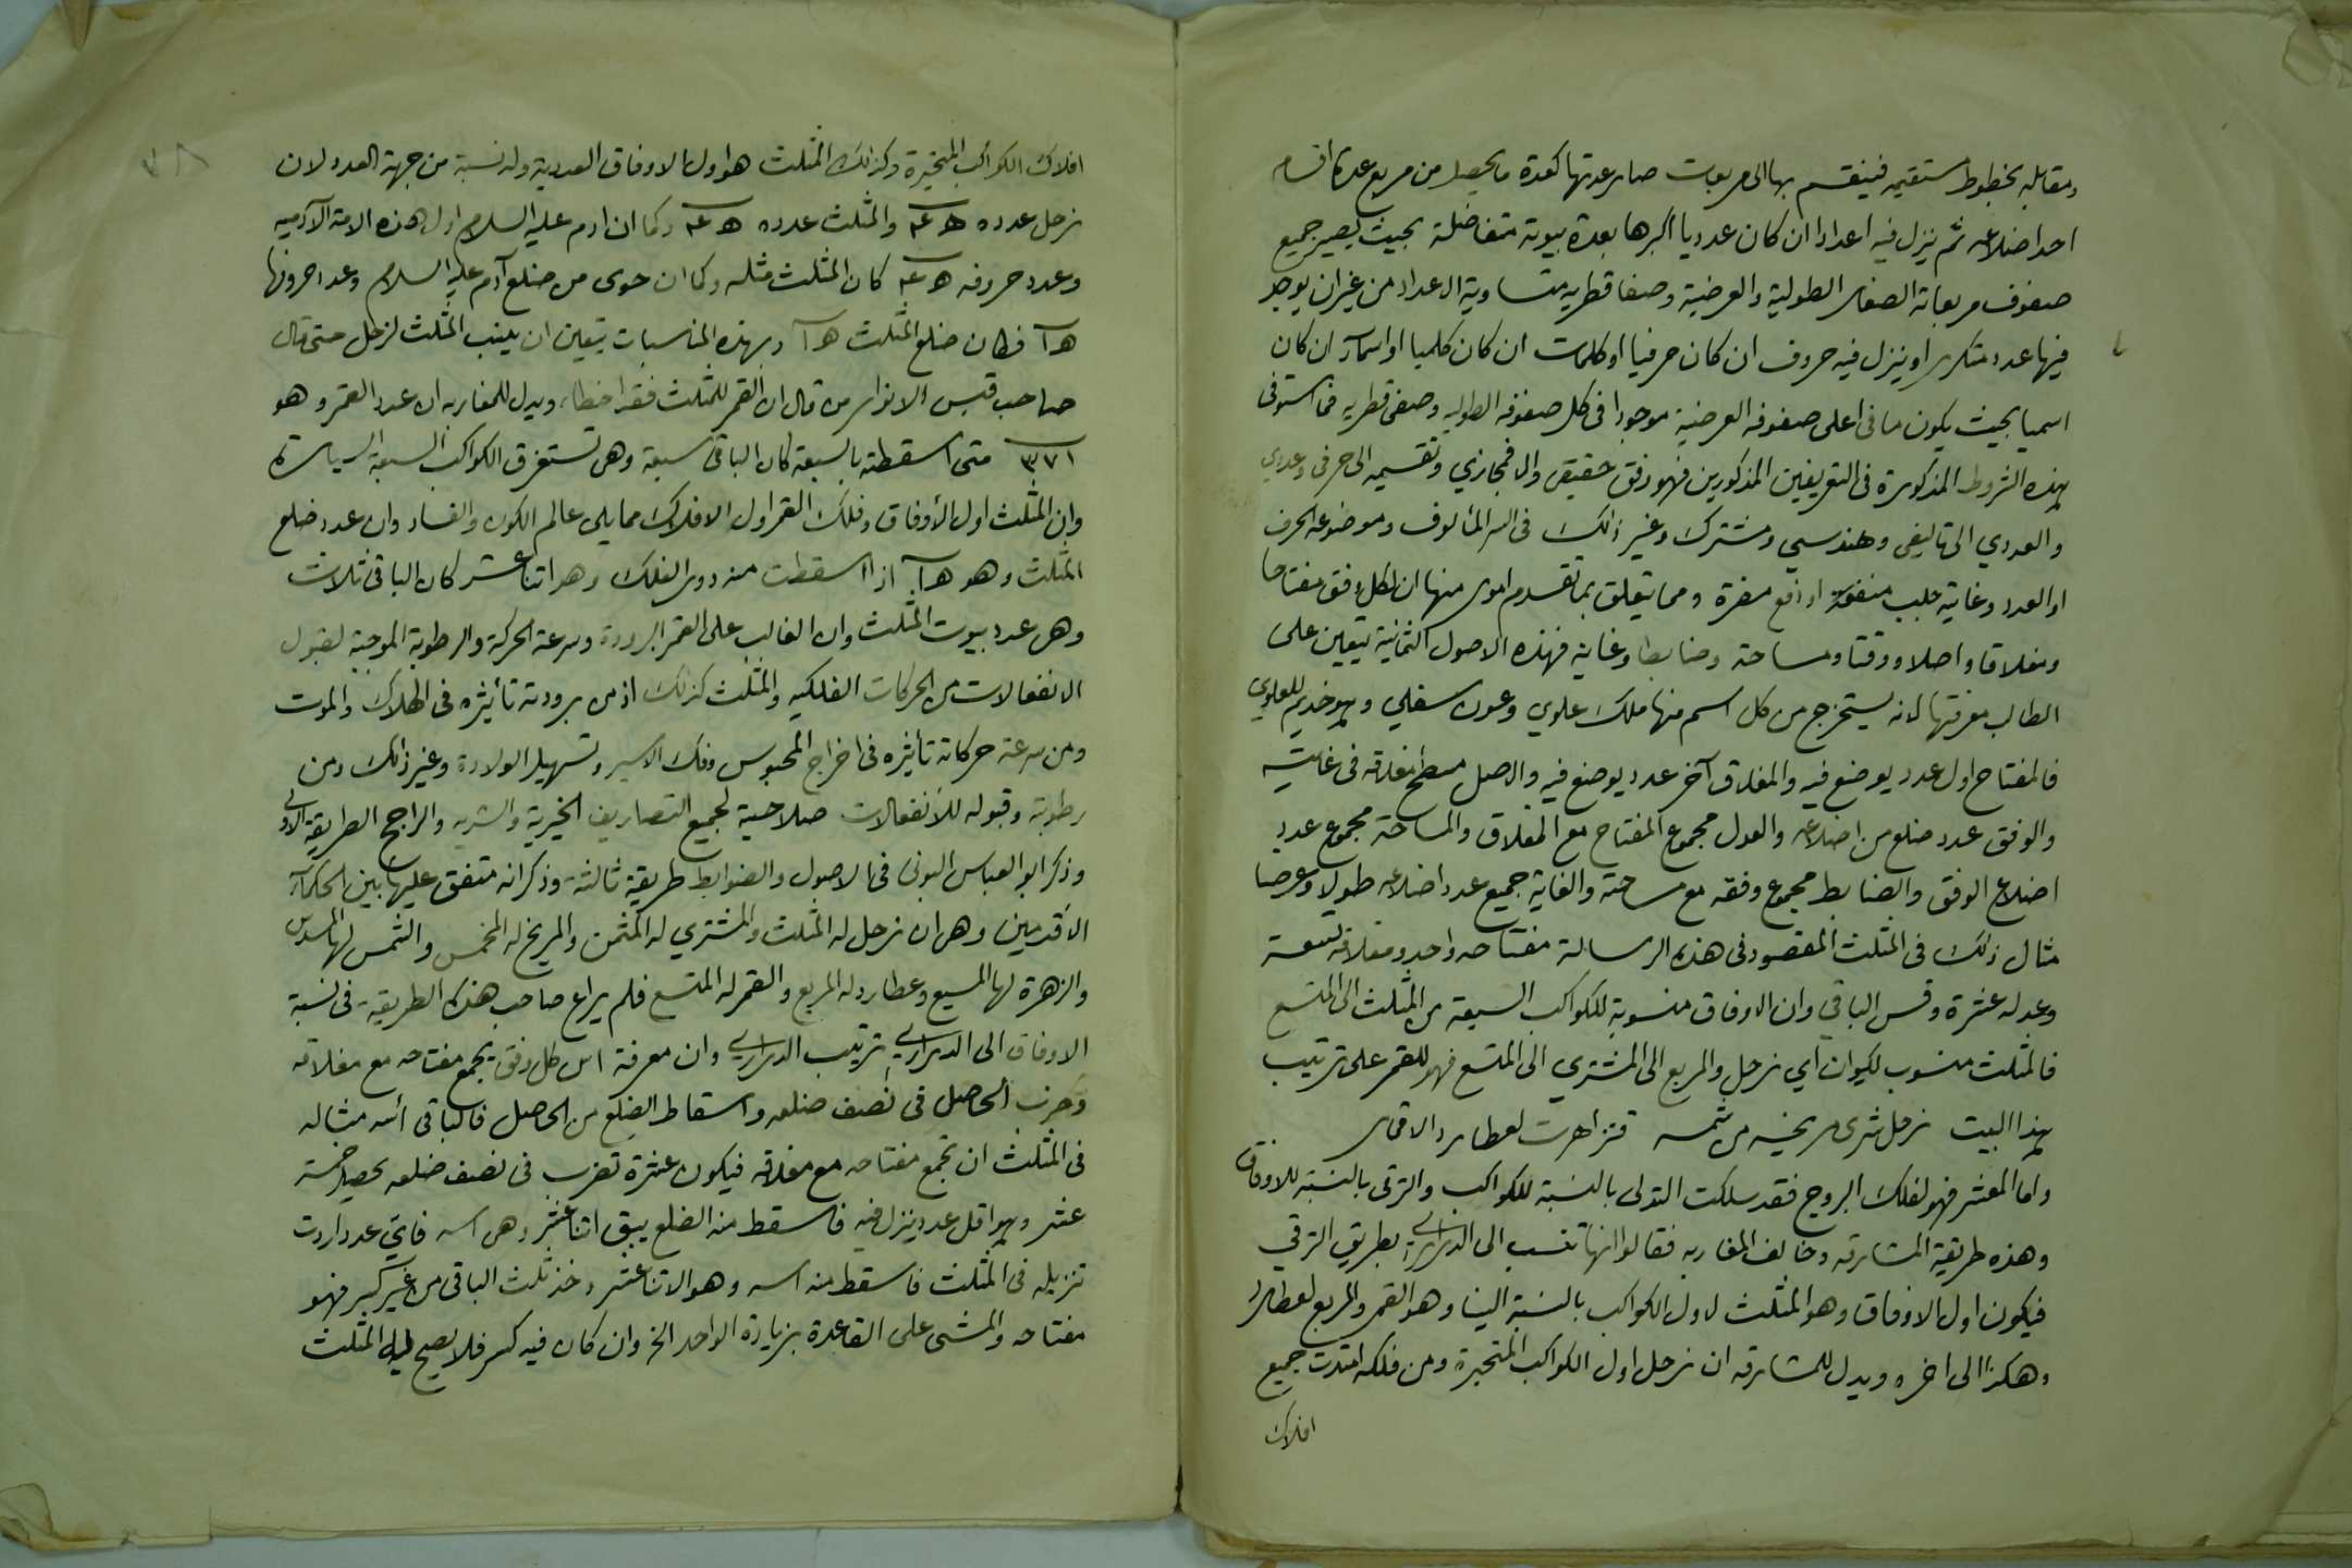 ومقابله بخطوط مستقيمه فينقسم بها الى مربعات صار عدتها كعدة ما يحصل من مربع عدة اقسام
احد اضلاعه ثم ينزل فيه اعدادا ان كان عدديا اكبرها بعدة بيوته متفاضلة بحيث يصير جميع
صفوف مربعاته الصغار الطولية والعرضية وصفا قطريه متساوية الاعداد من غير ان يوجد
فيها عدد متكرر او ينزل فيه حروف ان كان حرفيا او كلمات ان كان كلميا او اسمآء ان كان
اسميا بحيث يكون ما فى اعلى صفوفه العرضية موجودا فى كل صفوفه الطوليه وصفى قطريه فما استوفى
بهذه الشروط المذكورة فى التعريفين المذكورين فهو وفق حقيقى والا فمجازي وتقسيمه الى حرفى وعددي
والعددي الى تاليفى وهندسي ومشترك وغير ذلك فى السر المألوف وموضوعه الحرف
او العدد وغايته جلب منفعة او دفع مضرة ومما يتعلق بما تقدم امور منها ان لكل وفق مفتاحا
ومغلاقا واصلا ووفقا ومساحة وضابطا وغاية فهذه الاصول الثمانية يتعين على
الطالب معرفتها لانه يستخرج من كل اسم منها ملك علوي وعون سفلي وهو خديم للعلوي
فالمفتاح اول عدد يوضع فيه والمغلاق آخر عدد يوضع فيه والاصل مسطح مغلاقه فى غايته
والوفق عدد ضلع من اضلاعه والعدل مجموع المفتاح مع المغلاق والمساحة مجموع عدد
اضلاع الوفق والضابط مجموع وفقه مع مساحته والغاية جميع عدد اضلاعه طولا وعرضا
مثال ذلك فى المثلث المقصود فى هذه الرسالة مفتاحه واحد ومغلاقه تسعة
وعدله عشرة وقس الباقي وان الاوفاق منسوبة للكواكب السبعة من المثلث الى المتسع
فالمثلث منسوب لكيوان اي زحل والمربع الى المشتري الى المتسع فهو للقمر على ترتيب
بهذا البيت زحل شرى مريخه من شمسه فتزاهرت لعطارد الاقمار
واما المعشر فهو لفلك البروج فقد سلكت التدلى بالنسبة للكواكب والترقى بالنسبة للاوفاق
وهذه طريقة المشارقه وخالف المغاربه فقالوا انها تنسب الى الدرارى بطريق الترقي
فيكون اول الاوفاق وهو المثلث لاول الكواكب بالنسبة الينا وهو القمر والمربع لعطارد
وهكذا الى اخره ويدل للمشارقه ان زحل اول الكواكب المتحيرة ومن فلكه امتدت جميع
افلاك
افلاك الكواكب المتحيرة وكذلك المثلث هو اول الاوفاق العددية وله نسبة من جهة العدد لان
زحل عدده ٤٥ والمثلث عدده ٤٥ وكما ان ادم عليه السلام اول هذه الامة الآدميه
وعدد حروفه ٤٥ كان المثلث مثله وكما ان حوى من ضلع آدم عليه السلام وعدد حروفها
١٥ فكان ضلع المثلث ١٥ وبهذه المناسبات يتعين ان ينسب المثلث لزحل حتى قال
صاحب قبس الانوار من قال ان القمر للمثلث فقد اخطاء ويدل للمغاربه ان عدد القمر وهو
٣٧١ متى اسقطته بالسبعة كان الباقى سبعة وهى تستغرق الكواكب السبعة السيارة
وان المثلث اول الأوفاق وفلك القمر اول الافلاك مما يلى عالم الكون والفساد وان عدد ضلع
المثلث وهو ١٥ اذا اسقطت منه دور الفلك وهو اثنا عشر كان الباقى ثلاث
وهى عدد بيوت المثلث وان الغالب على القمر البرودة وسرعة الحركة والرطوبة الموجبة لقبول
الانفعالات من الحركات الفلكيه والمثلث كذلك اذ من برودته تأثيره فى الهلاك والموت
ومن سرعة حركاته تأثيره فى اخراج المحبوس وفك الاسير وتسهيل الولادة وغير ذلك ومن
رطوبته وقبوله للأنفعالات صلاحية لجميع التصاريف الخيرية والشريه والراجح الطريقة الاولى
وذكر ابو العباس البونى فى الاصول والضوابط طريقة ثالثة وذكر انه متفق عليها بين الحكمآء
الأقدمين وهى ان زحل له المثلث والمشتري له المثمن والمريخ له المخمس والشمس لها المسدس
والزهرة لها المسبع وعطارد له المربع والقمر له المتسع فلم يراع صاحب هذه الطريقة فى نسبة
الاوفاق الى الدرارى ترتيب الدرارى وان معرفة اس كل وفق بجمع مفتاحه مع مغلاقه
وضرب الحاصل فى نصف ضلعه واسقاط الضلع من الحاصل فالباقى أسه مثاله
فى المثلث ان تجمع مفتاحه مع مغلاقه فيكون عشرة تضرب فى نصف ضلعه يحصل خمسة
عشر وهو اقل عدد ينزل فيه فاسقط منه الضلع يبقى اثنا عشر وهى اسه فاي عدد اردت
تنزيله فى المثلث فاسقط منه اسه وهو الاثنا عشر وخذ ثلث الباقى من غير كسر فهو
مفتاحه والمشى على القاعدة بزيادة الواحد الخ وان كان فيه كسر فلا يصح المثلث